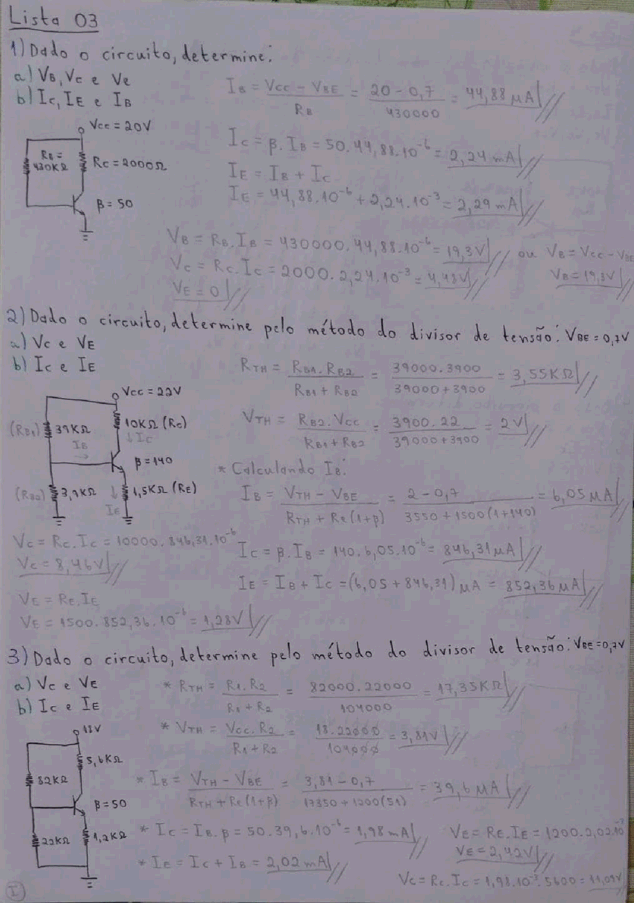 Lista 03
1) Dado o circuito, determine:
a) VB, VC e Ve
b) IC, IE e IB
VCC = 20V
RB = 430KΩ
RC = 2000Ω
β = 50
IB = VCC - VBE / RB = 20 - 0,7 / 430000 = 44,88 μA
IC = β . IB = 50 . 44,88 . 10^-6 = 2,24 mA
IE = IB + IC
IE = 44,88 . 10^-6 + 2,24 . 10^-3 = 2,29 mA
VB = RB . IB = 430000 . 44,88 . 10^-6 = 19,3V ou VB = VCC - VBE
VC = RC . IC = 2000 . 2,24 . 10^-3 = 4,48V VB = 19,3V
VE = 0
2) Dado o circuito, determine pelo método do divisor de tensão: VBE = 0,7V
a) VC e VE
b) IC e IE
VCC = 22V
(RB1) 39KΩ
10KΩ (RC)
IB
IC
β = 140
(RB2) 3,9KΩ
1,5KΩ (RE)
IE
RTH = RB1 . RB2 / RB1 + RB2 = 39000 . 3900 / 39000 + 3900 = 3,55KΩ
VTH = RB2 . VCC / RB1 + RB2 = 3900 . 22 / 39000 + 3900 = 2V
* Calculando IB:
IB = VTH - VBE / RTH + RE (1+β) = 2 - 0,7 / 3550 + 1500 (1+140) = 6,05 μA
VC = RC . IC = 10000 . 846,31 . 10^-6
VC = 8,46V
IC = β . IB = 140 . 6,05 . 10^-6 = 846,31 μA
IE = IB + IC = (6,05 + 846,31) μA = 852,36 μA
VE = RE . IE
VE = 1500 . 852,36 . 10^-6 = 1,28V
3) Dado o circuito, determine pelo método do divisor de tensão: VBE = 0,7V
a) VC e VE
b) IC e IE
18V
5,6KΩ
82KΩ
β = 50
22KΩ
1,2KΩ
* RTH = R1 . R2 / R1 + R2 = 82000 . 22000 / 104000 = 17,35KΩ
* VTH = VCC . R2 / R1 + R2 = 18 . 22000 / 104000 = 3,81V
* IB = VTH - VBE / RTH + RE (1+β) = 3,81 - 0,7 / 17350 + 1200 (51) = 39,6 μA
* IC = IB . β = 50 . 39,6 . 10^-6 = 1,98 mA
* IE = IC + IB = 2,02 mA
VE = RE . IE = 1200 . 2,02 . 10^-3
VE = 2,42V
VC = RC . IC = 1,98 . 10^-3 . 5600 = 11,09V